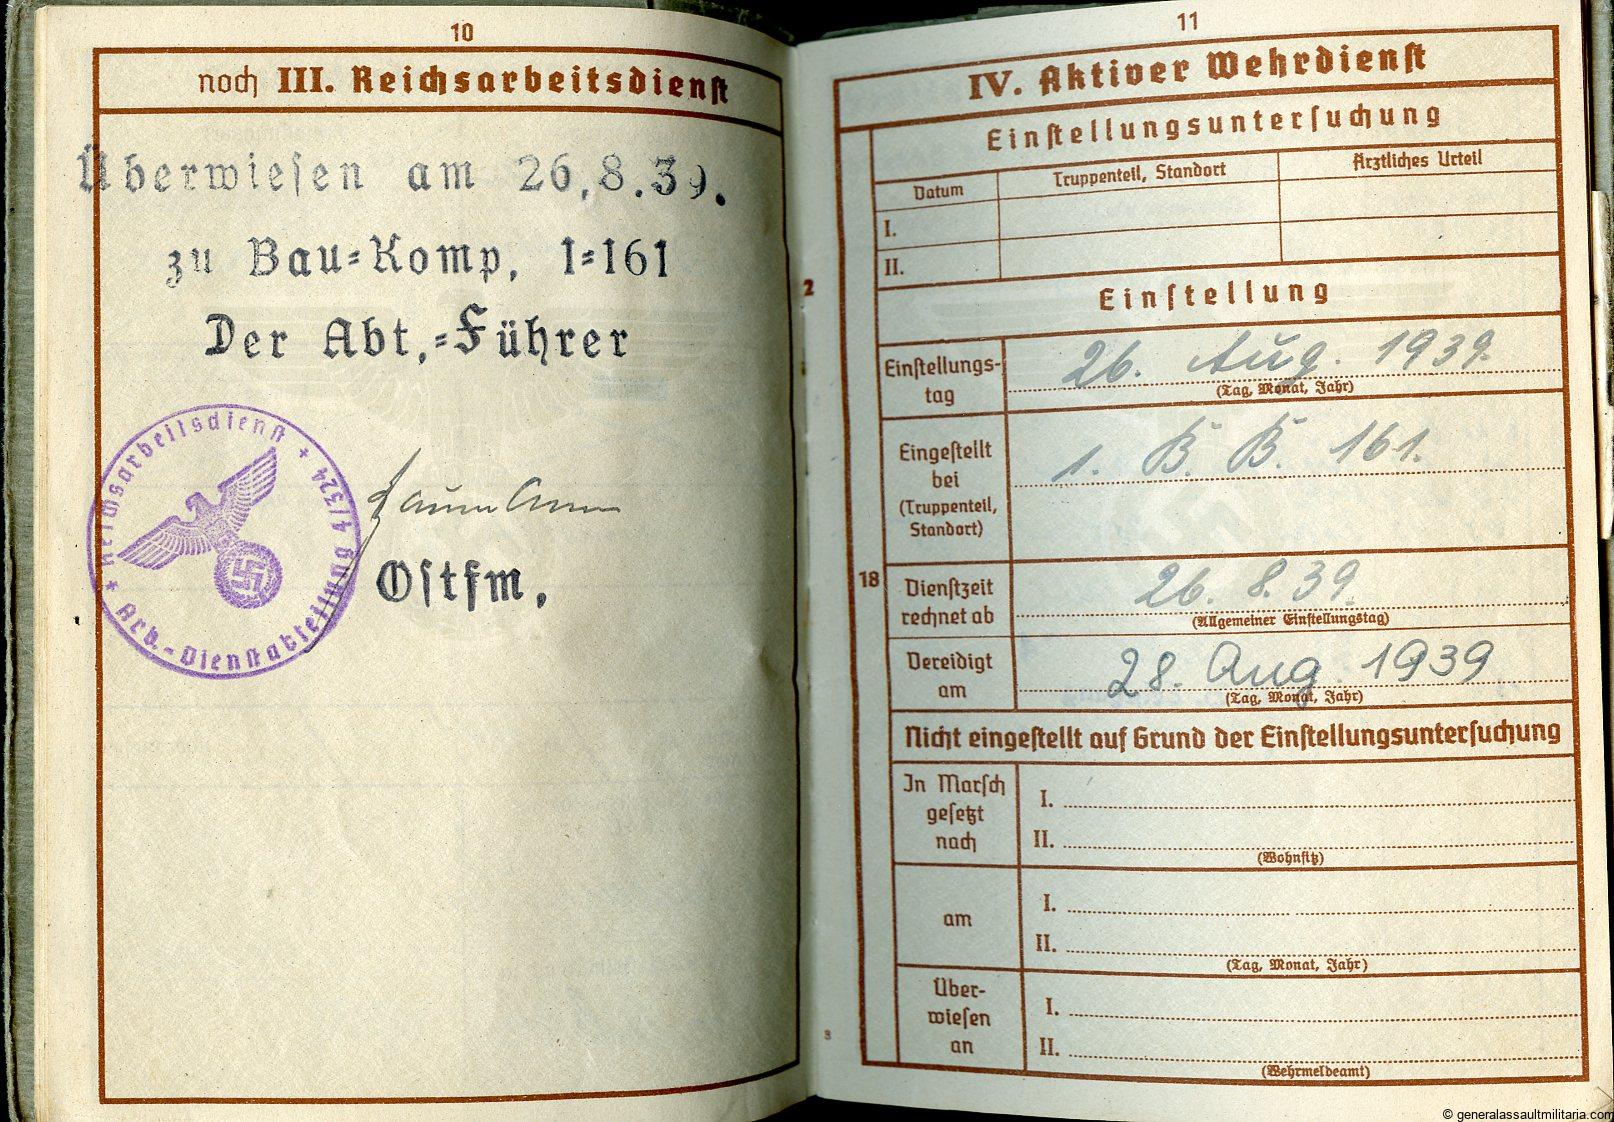 10
noch III. Reichsarbeitsdienst
Überwiesen am 26.8.39.
zu Bau=Komp. 1=161
Der Abt.=Führer
+ Reichsarbeitsdienst + Arb.-Dienstabteilung 4/324
Ostfm.
11
IV. Aktiver Wehrdienst
Einstellungsuntersuchung
Datum Truppenteil, Standort Ärztliches Urteil
I.
II.
2
Einstellung
Einstellungs-
tag
26. Aug. 1939.
(Tag, Monat, Jahr)
Eingestellt
bei
(Truppenteil,
Standort)
1. B. B. 161.
18
Dienstzeit
rechnet ab
26. 8. 39.
(Allgemeiner Einstellungstag)
Vereidigt
am
28. Aug. 1939
(Tag, Monat, Jahr)
Nicht eingestellt auf Grund der Einstellungsuntersuchung
In Marsch
gesetzt
nach
I.
II.
(Wohnsitz)
am
I.
II.
(Tag, Monat, Jahr)
Über-
wiesen
an
I.
II.
(Wehrmeldeamt)
3
© generalassaultmilitaria.com